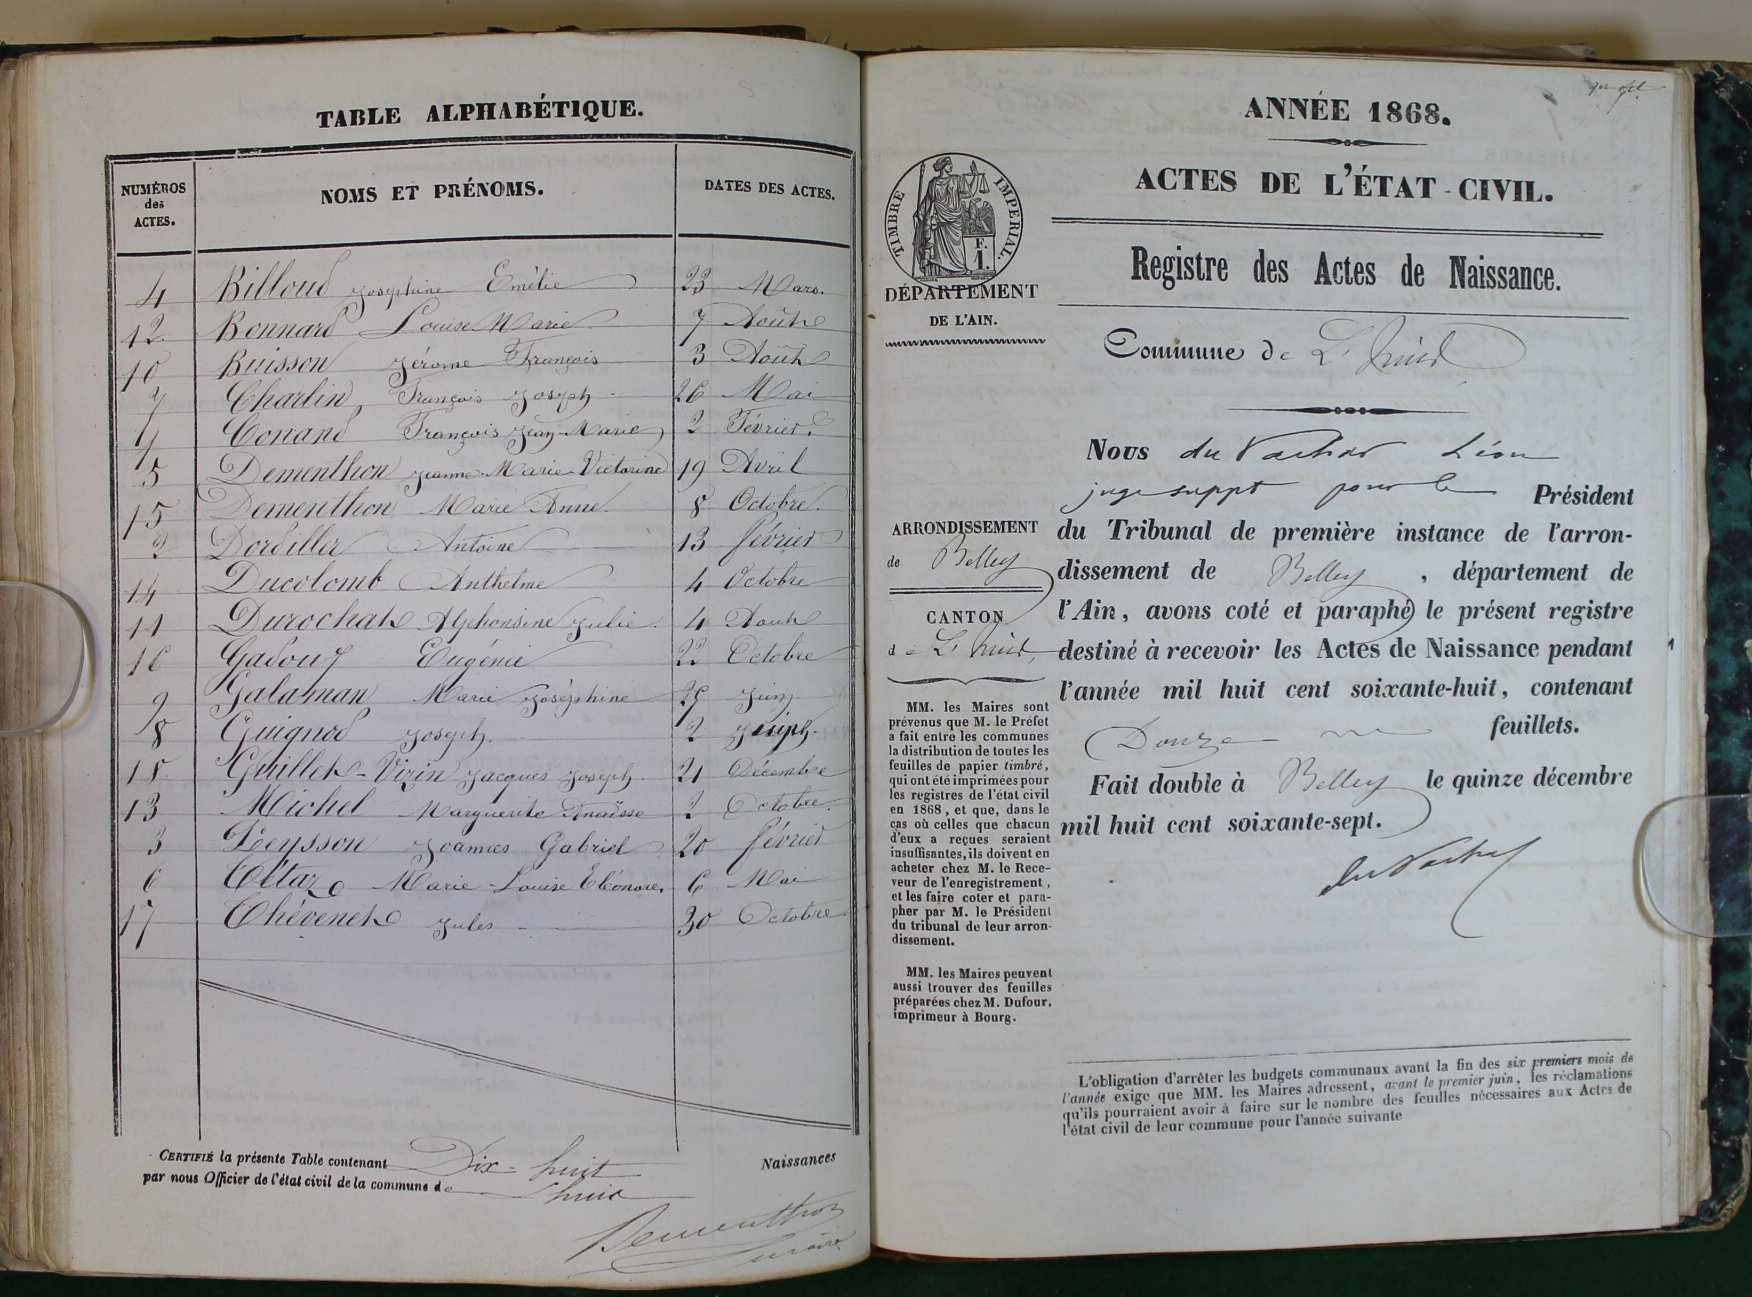 TABLE ALPHABÉTIQUE.
NUMÉROS
des
ACTES.
NOMS ET PRÉNOMS.
DATES DES ACTES.
4 Billoud Joséphine Emélie 23 Mars.
12 Bonnard Louise Marie 7 Août
10 Buisson Jérome François 3 Août
7 Charlin, François Joseph 26 Mai
Conand François Jean-Marie 2 Février.
5 Dementhon Jeanne-Marie-Victorine 19 Avril
15 Dementhon Marie Anne. 8 Octobre.
2 Dordiller Antoine 13 février
14 Ducolomb Anthelme 4 Octobre
11 Durochat Alphonsine Julie. 4 Août
16 Gadouz Eugénie 22 Octobre
9 Galaman Marie Joséphine Juin
8 Guignod Joseph. 2
18 Guillet-Vizin Jacques Joseph 21 Décembre
13 Michel Marguerite Anaïsse 2 Octobre.
3 Peysson Joannes Gabriel 20 février
6 Marie-Louise Eléonore. 6 Mai
17 Thévenet Jules 30 Octobre
CERTIFIÉ la présente Table contenant Dix-huit Naissances
par nous Officier de l'état civil de la commune de Lhuis
Dementhon
maire
ANNÉE 1868.
ACTES DE L'ÉTAT-CIVIL.
TIMBRE IMPÉRIAL.
F.
1.
DÉPARTEMENT
DE L'AIN.
Registre des Actes de Naissance.
Commune de L'huis
ARRONDISSEMENT
de Belley
CANTON
de L'huis,
MM. les Maires sont
prévenus que M. le Préfet
a fait entre les communes
la distribution de toutes les
feuilles de papier timbré,
qui ont été imprimées pour
les registres de l'état civil
en 1868, et que, dans le
cas où celles que chacun
d'eux a reçues seraient
insuffisantes, ils doivent en
acheter chez M. le Rece-
veur de l'enregistrement,
et les faire coter et para-
pher par M. le Président
du tribunal de leur arron-
dissement.
MM. les Maires peuvent
aussi trouver des feuilles
préparées chez M. Dufour,
imprimeur à Bourg.
Nous du Vachat Léon
juge suppt pour le Président
du Tribunal de première instance de l'arron-
dissement de Belley, département de
l'Ain, avons coté et paraphé le présent registre
destiné à recevoir les Actes de Naissance pendant
l'année mil huit cent soixante-huit, contenant
Douze feuillets.
Fait double à Belley le quinze décembre
mil huit cent soixante-sept.
du Vachat
L'obligation d'arrêter les budgets communaux avant la fin des six premiers mois de
l'année exige que MM. les Maires adressent, avant le premier juin, les réclamations
qu'ils pourraient avoir à faire sur le nombre des feuilles nécessaires aux Actes de
l'état civil de leur commune pour l'année suivante